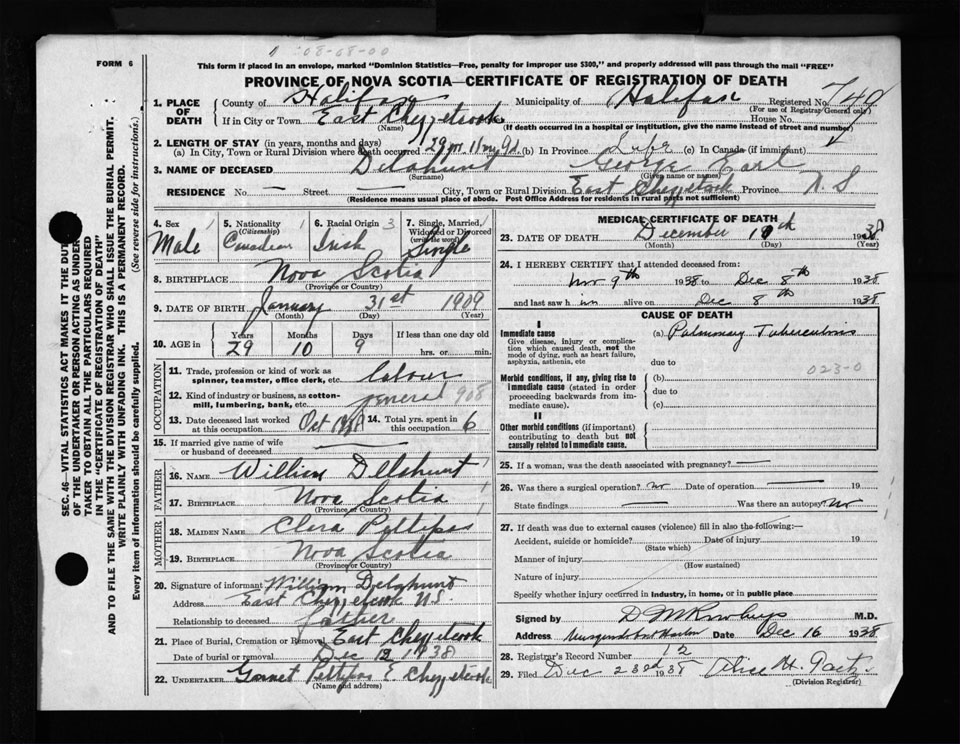 08-08-00
FORM 6
This form if placed in an envelope, marked "Dominion Statistics—Free, penalty for improper use $300," and properly addressed will pass through the mail "FREE"
PROVINCE OF NOVA SCOTIA—CERTIFICATE OF REGISTRATION OF DEATH
1. PLACE OF DEATH
County of Halifax Municipality of Halifax Registered No. 740
(For use of Registrar General only)
If in City or Town East Chezzetcook House No.
(Name) (If death occurred in a hospital or institution, give the name instead of street and number)
2. LENGTH OF STAY (in years, months and days)
(a) In City, Town or Rural Division where death occurred 29 yr 11 m 9 d. (b) In Province Life (c) In Canada (if immigrant)
3. NAME OF DECEASED Delahunt George Earl
(Surname) (Given name or names)
RESIDENCE No. — Street — City, Town or Rural Division East Chezzetcook Province N. S
(Residence means usual place of abode. Post Office Address for residents in rural parts not sufficient)
4. Sex Male
5. Nationality (Citizenship) Canadian
6. Racial Origin 3 Irish
7. Single, Married, Widowed or Divorced (write the word) Single
8. BIRTHPLACE Nova Scotia
(Province or Country)
9. DATE OF BIRTH January 31st 1909
(Month) (Day) (Year)
10. AGE in Years Months Days If less than one day old
29 10 9 hrs. or min.
OCCUPATION
11. Trade, profession or kind of work as spinner, teamster, office clerk, etc. labour
12. Kind of industry or business, as cotton-mill, lumbering, bank, etc. general 908
13. Date deceased last worked at this occupation Oct 1938
14. Total yrs. spent in this occupation 6
15. If married give name of wife or husband of deceased —
FATHER
16. NAME William Delahunt
17. BIRTHPLACE Nova Scotia
(Province or Country)
MOTHER
18. MAIDEN NAME Clara Pettipas
19. BIRTHPLACE Nova Scotia
(Province or Country)
20. Signature of informant William Delahunt
Address East Chezzetcook N.S.
Relationship to deceased father
21. Place of Burial, Cremation or Removal East Chezzetcook
Date of burial or removal Dec 12 1938
22. UNDERTAKER Garnet Pettipas E. Chezzetcook
(Name and address)
MEDICAL CERTIFICATE OF DEATH
23. DATE OF DEATH December 10th 1938
(Month) (Day) (Year)
24. I HEREBY CERTIFY that I attended deceased from:
Nov 9th 1938 to Dec 8th 1938
and last saw him alive on Dec 8th 1938
CAUSE OF DEATH
I
Immediate cause
Give disease, injury or complication which caused death, not the mode of dying, such as heart failure, asphyxia, asthenia, etc
(a) Pulmonary Tuberculosis
due to
023-0
Morbid conditions, if any, giving rise to immediate cause (stated in order proceeding backwards from immediate cause).
(b)
due to
(c)
II
Other morbid conditions (if important) contributing to death but not causally related to immediate cause.
25. If a woman, was the death associated with pregnancy? —
26. Was there a surgical operation? no Date of operation — 19
State findings — Was there an autopsy? no
27. If death was due to external causes (violence) fill in also the following:—
Accident, suicide or homicide? Date of injury 19
(State which)
Manner of injury
(How sustained)
Nature of injury
Specify whether injury occurred in Industry, in home, or in public place
Signed by M.D.
Address Musquodoboit Harbor Date Dec 16 1938
28. Registrar's Record Number 12
29. Filed Dec 23rd 1938 Alice H.
(Division Registrar)
SEC. 46—VITAL STATISTICS ACT MAKES IT THE DUTY
OF THE UNDERTAKER OR PERSON ACTING AS UNDER-
TAKER TO OBTAIN ALL THE PARTICULARS REQUIRED
IN THE "CERTIFICATE OF REGISTRATION OF DEATH"
AND TO FILE THE SAME WITH THE DIVISION REGISTRAR WHO SHALL ISSUE THE BURIAL PERMIT.
WRITE PLAINLY WITH UNFADING INK. THIS IS A PERMANENT RECORD.
Every item of information should be carefully supplied. (See reverse side for instructions.)